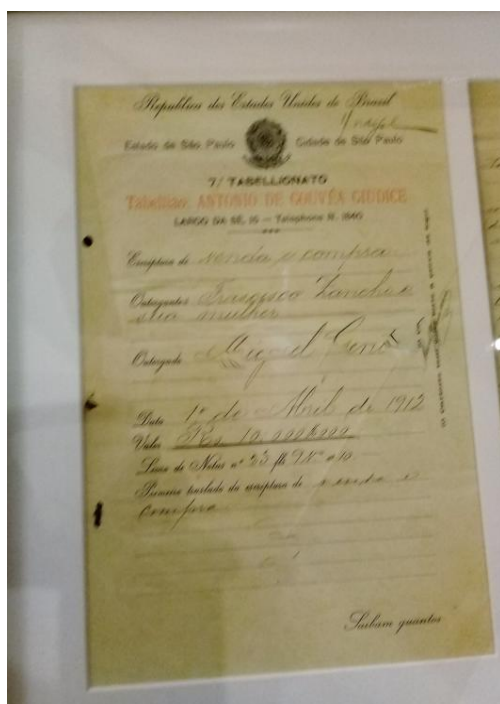 Republica dos Estados Unidos do Brazil
Estado de São Paulo Cidade de São Paulo
7.º TABELLIONATO
Tabellião: ANTONIO DE GOUVÊA GIUDICE
LARGO DA SÉ, 15 — Telephone N. 1840
Escriptura de venda e compra
Outorgantes Francisco Zanchi e
sua mulher
Outorgado Miguel
Data 1º de Abril de 1912
Valor Rs 10.000$000
Livro de Notas nº 33 fls 9
Primeiro traslado da escriptura de venda e
compra
Saibam quantos